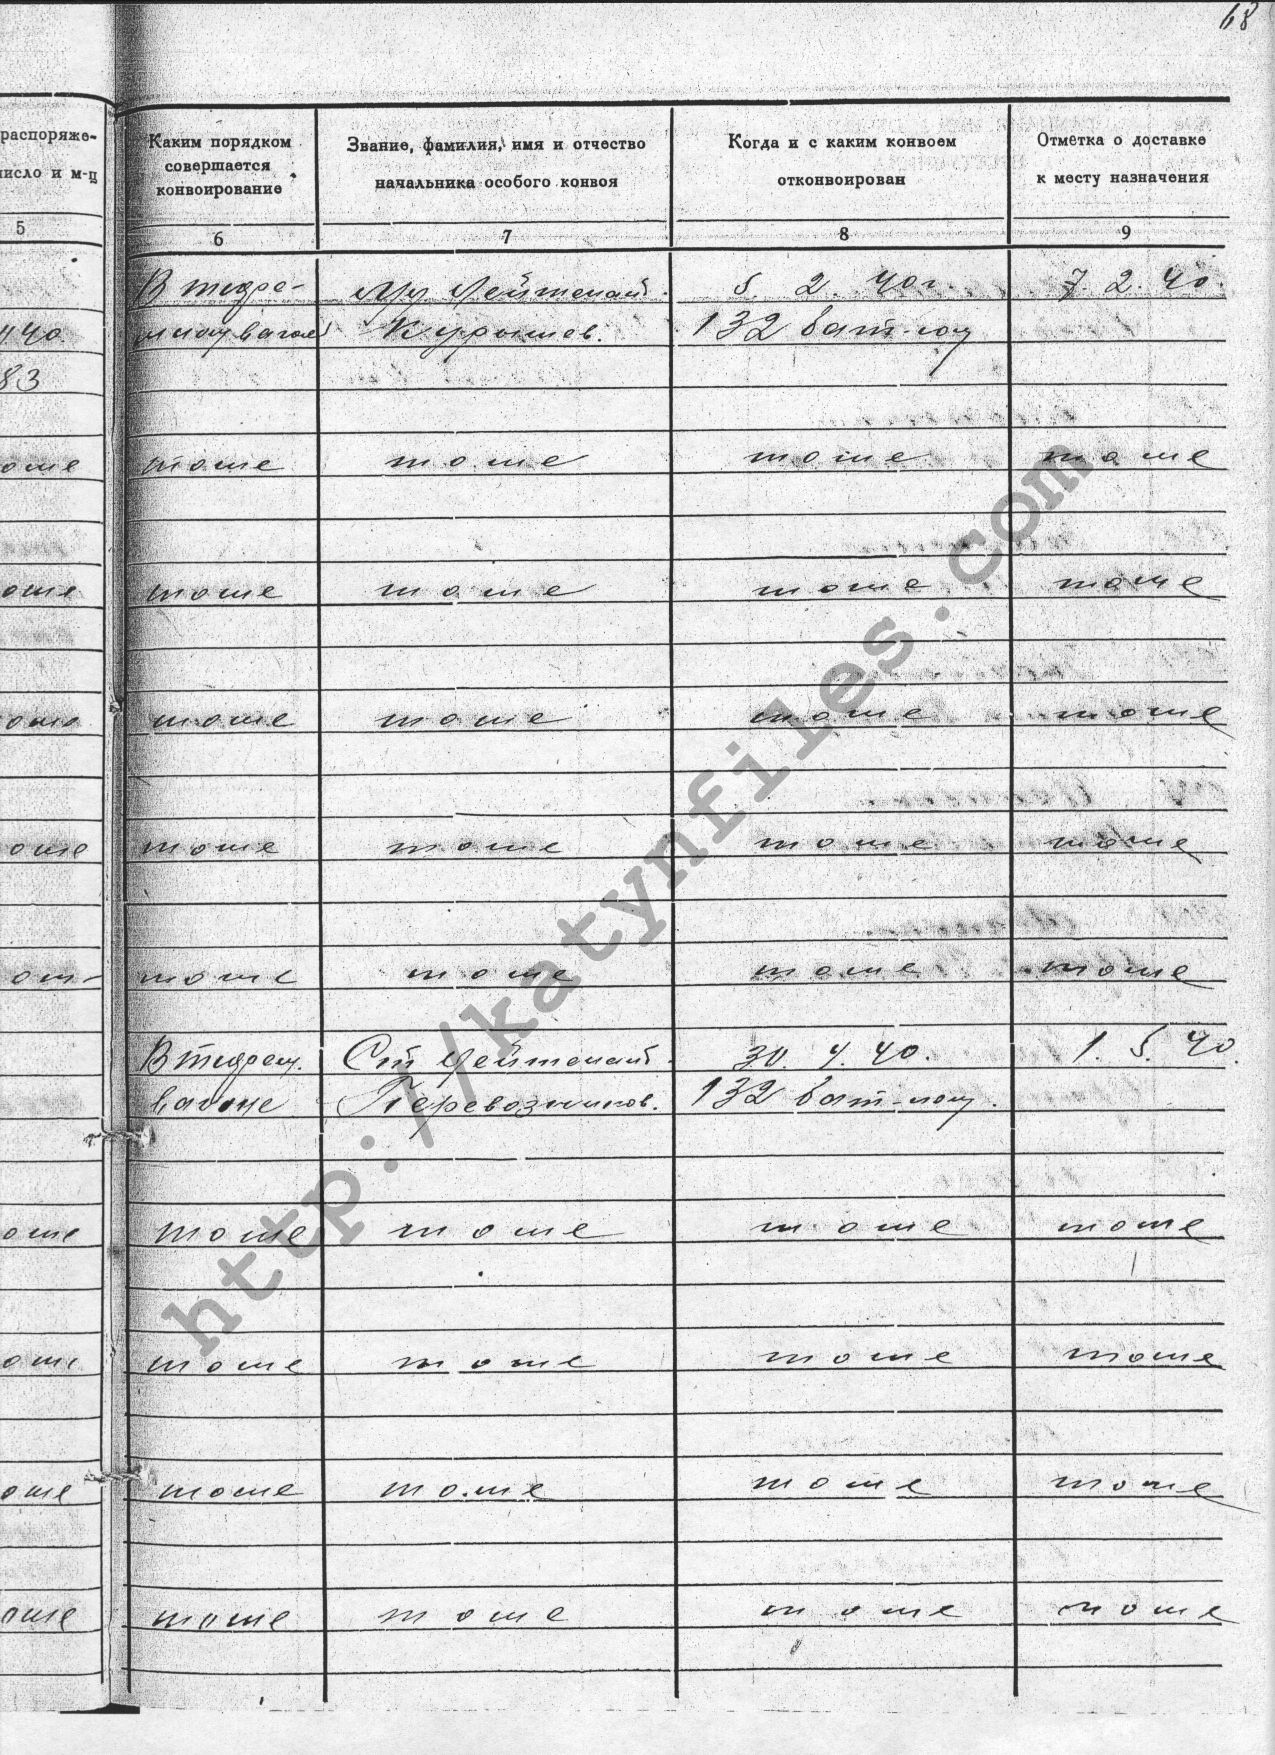 68
распоряже- Каким порядком Звание, фамилия, имя и отчество Когда и с каким конвоем Отметка о доставке
число и м-ц совершается начальника особого конвоя отконвоирован к месту назначения
конвоирование
5 6 7 8 9
В тюре- Мл Лейтенант 5. 2. 40г. 7. 2. 40.
40. мном вагоне Курышев. 132 бат-ном
83
тоже тоже тоже тоже
тоже тоже тоже тоже
тоже тоже тоже тоже
тоже тоже тоже тоже
тоже тоже тоже тоже
В тюрем. Ст Лейтенант 30. 4. 40. 1. 5. 40.
вагоне Перевозников. 132 бат-ном.
тоже тоже тоже тоже
тоже тоже тоже тоже
тоже тоже тоже тоже
тоже тоже тоже тоже
http://katynfiles.com